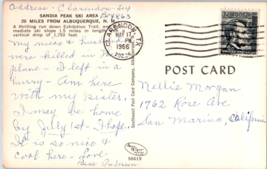 Address - Clarendon - Box
SANDIA PEAK SKI AREA
20 MILES FROM ALBUQUERQUE, N.
A thrilling run down Exhibition Trail, an inter-
mediate ski slope 1.5 miles in length
vertical drop of 1,752 feet.
my niece & husband
were killed in
plane - I left in a
hurry - Am here
with my sister.
I may be home
by July 1st - I hope.
It is so nice &
cool here - Love
MAY 17
1966
POST CARD
Nellie Morgan
1762 Rose Ave
San Marino, California
Southwest Post Card Company, Albuquerque